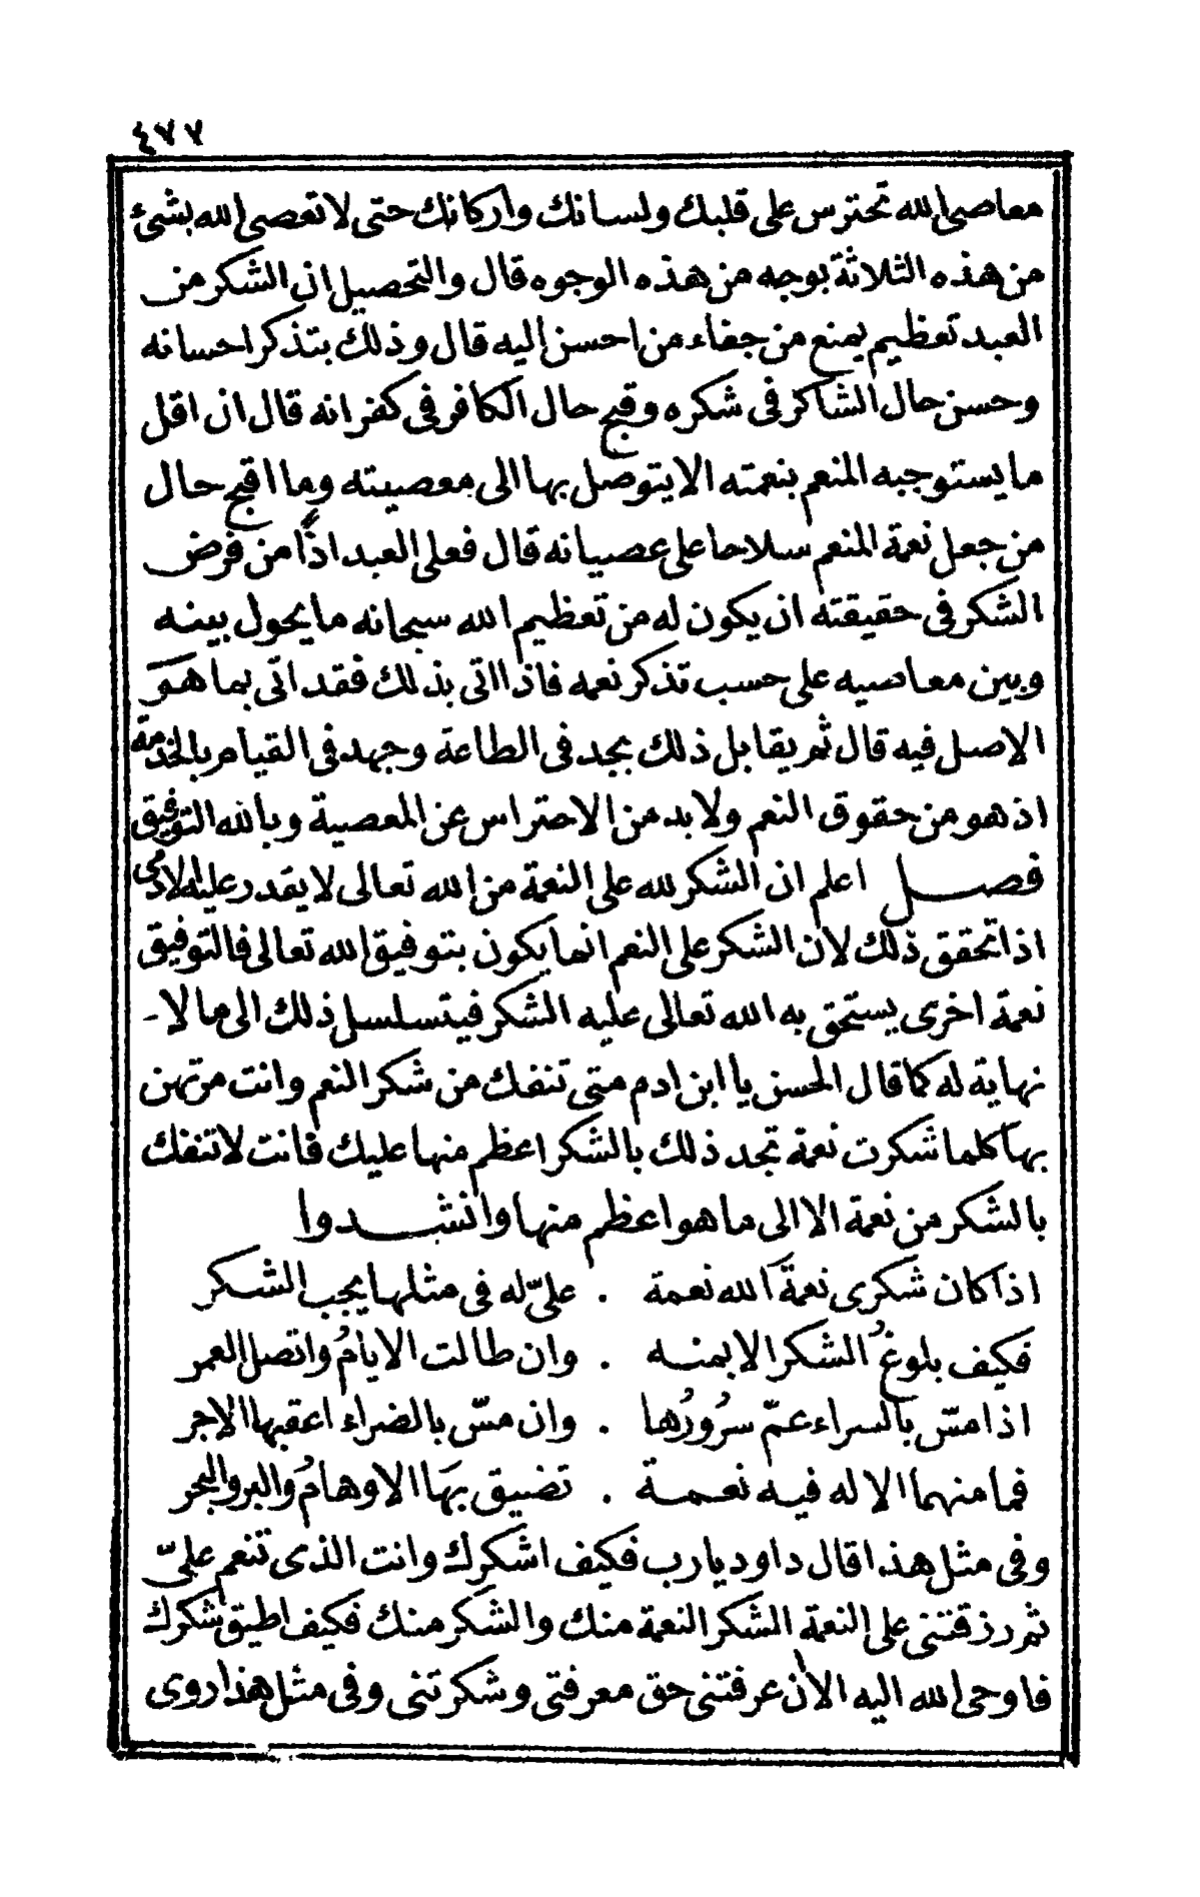 ٤٧٧
معاصي الله تحترس على قلبك ولسانك واركانك حتى لا تعصى الله بشئ
من هذه الثلاثة بوجه من هذه الوجوه قال والتحصيل ان الشكر من
العبد تعظيم يمنع من جفاء من احسن اليه قال وذلك بتذكر احسانه
وحسن حال الشاكر فى شكره وقبح حال الكافر فى كفرانه قال ان اقل
ما يستوجبه المنعم بنعمته الا يتوصل بها الى معصيته وما اقبح حال
من جعل نعمة المنعم سلاحا على عصيانه قال فعلى العبد اذًا من فرض
الشكر فى حقيقته ان يكون له من تعظيم الله سبحانه ما يحول بينه
وبين معاصيه على حسب تذكر نعمه فاذا اتى بذلك فقد اتى بما هو
الاصل فيه قال ثم يقابل ذلك بجد فى الطاعة وجهد فى القيام بالخدمة
اذ هو من حقوق النعم ولا بد من الاحتراس عن المعصية وبالله التوفيق
فصل اعلم ان الشكر لله على النعمة من الله تعالى لا يقدر عليه الادمى
اذا تحقق ذلك لان الشكر على النعم انما يكون بتوفيق الله تعالى فالتوفيق
نعمة اخرى يستحق به الله تعالى عليه الشكر فيتسلسل ذلك الى ما لا -
نهاية له كما قال الحسن يا ابن ادم متى تنفك من شكر النعم وانت مرتهن
بها كلما شكرت نعمة تجد ذلك بالشكر اعظم منها عليك فانت لا تنفك
بالشكر من نعمة الا الى ما هو اعظم منها وانشدوا
اذا كان شكرى نعمةَ الله نعمة . علىّ له فى مثلها يجب الشكر
فكيف بلوغُ الشكر الا بمنه . وان طالت الايامُ واتصل العمر
اذا مسّ بالسراء عمّ سرُورُها . وان مسّ بالضراء اعقبها الاجر
فما منهما الا له فيه نعمة . تضيق بهَا الاوهامُ والبر والبحر
وفى مثل هذا قال داود يا رب فكيف اشكرك وانت الذى تنعم علىّ
ثم رزقتنى على النعمة الشكر النعمة منك والشكر منك فكيف اطيق شكرك
فاوحى الله اليه الان عرفتنى حق معرفتى وشكرتنى وفى مثل هذا روى